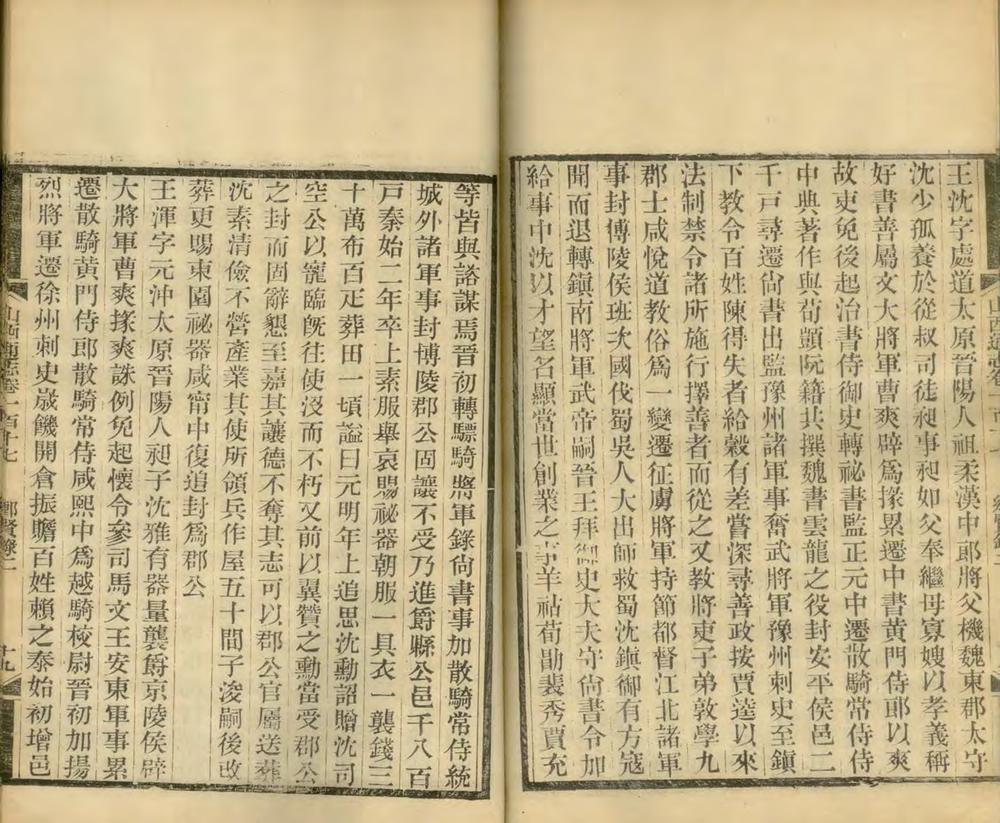 王沈字處道太原晉陽人祖柔漢中郎將父機魏東郡太守
沈少孤養於從叔司徒昶事昶如父奉繼母寡嫂以孝義稱
好書善屬文大將軍曹爽辟爲掾累遷中書黃門侍郎以爽
故吏免後起治書侍御史轉祕書監正元中遷散騎常侍侍
中典著作與荀顗阮籍共撰魏書雲龍之役封安平侯邑二
千戸尋遷尙書出監豫州諸軍事奮武將軍豫州刺史至鎭
下教令百姓陳得失者給穀有差嘗深尋善政按賈逵以來
法制禁令諸所施行擇善者而從之又教將吏子弟敦學九
郡士咸悅道教俗爲一變遷征虜將軍持節都督江北諸軍
事封博陵侯班次國伐蜀吳人大出師救蜀沈鎭御有方寇
聞而退轉鎭南將軍武帝嗣晉王拜御史大夫守尙書令加
給事中沈以才望名顯當世創業之事羊祜荀勖裴秀賈充
等皆與諮謀焉晉初轉驃騎將軍錄尙書事加散騎常侍統
城外諸軍事封博陵郡公固讓不受乃進爵縣公邑千八百
戸泰始二年卒上素服舉哀賜祕器朝服一具衣一襲錢三
十萬布百疋葬田一頃謚曰元明年上追思沈勳詔贈沈司
空公以寵臨旣往使沒而不朽又前以翼贊之勳當受郡公
之封而固辭懇至嘉其讓德不奪其志可以郡公官屬送葬
沈素清儉不營產業其使所領兵作屋五十間子浚嗣後改
葬更賜東園祕器咸甯中復追封爲郡公
王渾字元沖太原晉陽人昶子沈雅有器量襲爵京陵侯辟
大將軍曹爽掾爽誅例免起懷令參司馬文王安東軍事累
遷散騎黃門侍郎散騎常侍咸熙中爲越騎校尉晉初加揚
烈將軍遷徐州刺史歲饑開倉振贍百姓賴之泰始初增邑
山西通志卷一百十七 鄕賢錄二 十九